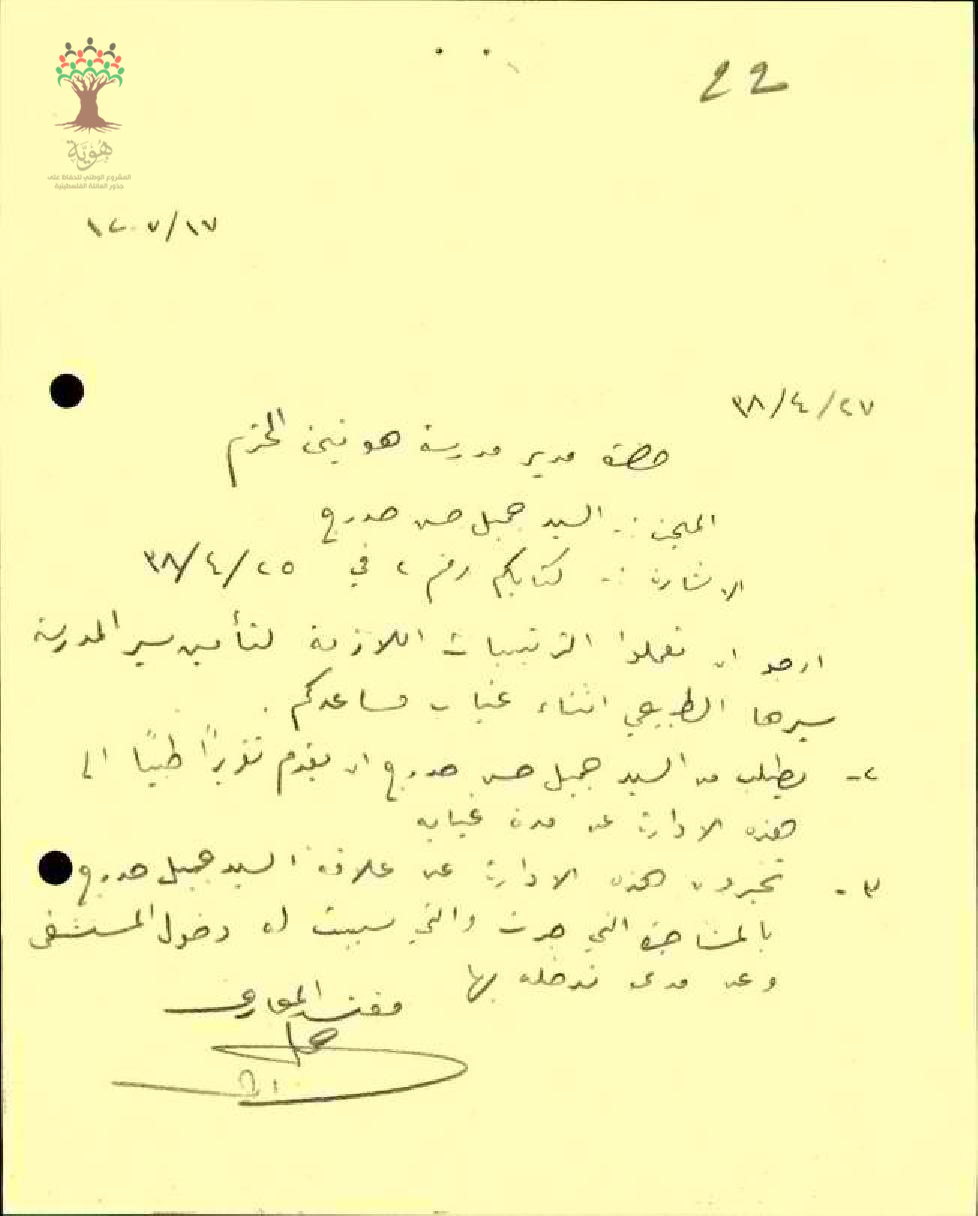 22
هوية
المشروع الوطني للحفاظ على
جذور العائلة الفلسطينية
١٢٠٧/١٧
٣٨/٤/٢٧
حضرة مدير مدرسة هونين المحترم
السيد جميل حسن صدرج
الاشارة :- كتابكم رقم ٢ في ٣٨/٤/٢٥
ارجو ان تعملوا الترتيبات اللازمة لتأمين سير المدرسة
سيرها الطبيعي اثناء غياب مساعدكم .
٢- يطلب من السيد جميل حسن صدرج ان يقدم تقريرًا طبيًا الى
هذه الادارة عن مدة غيابه
٣- تخبرون هذه الادارة عن علاقة السيد جميل صدرج
بالمشاجرة التي جرت والتي سببت له دخول المستشفى
وعن مدى تدخله بها
مفتش المعارف